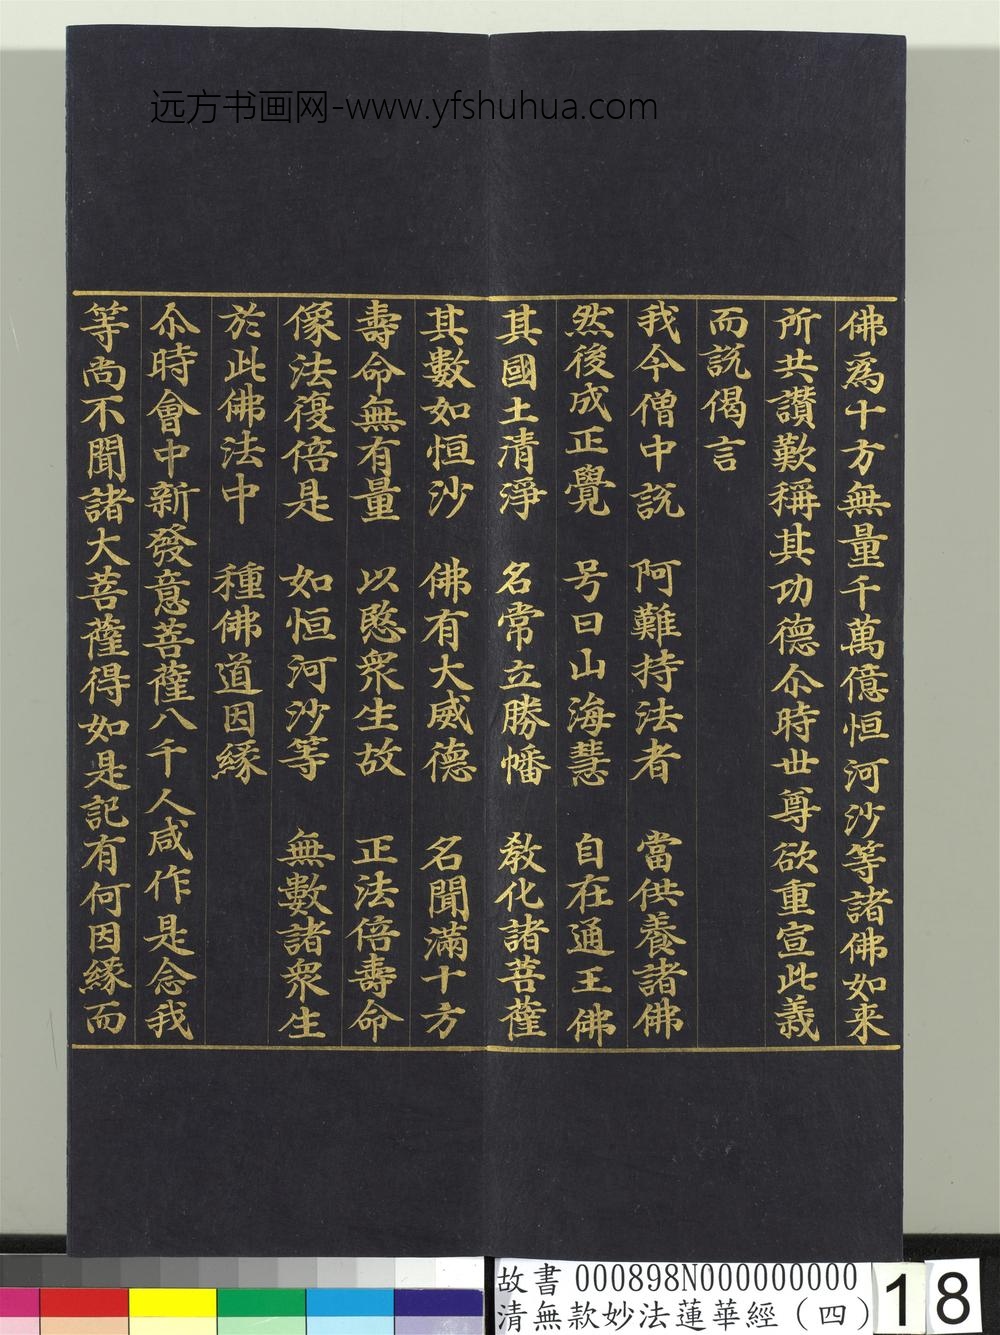 远方书画网-www.yfshuhua.com
佛為十方無量千萬億恒河沙等諸佛如来
所共讚歎稱其功德尒時世尊欲重宣此義
而説偈言
我今僧中説　阿難持法者　當供養諸佛
然後成正覺　号曰山海慧　自在通王佛
其國土清淨　名常立勝幡　教化諸菩薩
其數如恒沙　佛有大威德　名聞滿十方
壽命無有量　以愍衆生故　正法倍壽命
像法復倍是　如恒河沙等　無數諸衆生
於此佛法中　種佛道因緣
尒時會中新發意菩薩八千人咸作是念我
等尚不聞諸大菩薩得如是記有何因緣而
故書 000898N000000000
清無款妙法蓮華經（四）
18